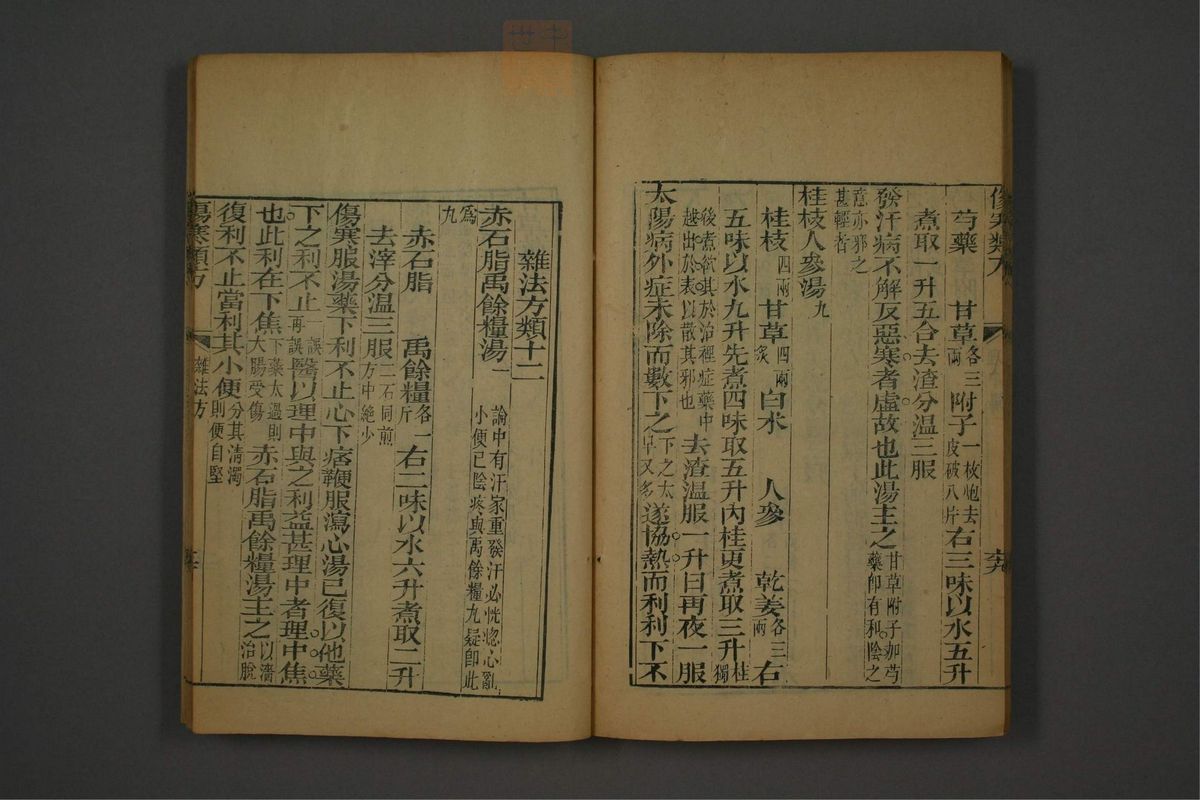 傷寒類方
芍藥 甘草各三兩 附子一枚炮去皮破八片 右三味以水五升
煮取一升五合去渣分溫三服
發汗病不解反惡寒者虛故也此湯主之甘草附子加芍藥卽有和陰之
意亦邪之甚輕者
桂枝人參湯九
桂枝四兩 甘草四兩炙 白朮 人參 乾姜各三兩 右
五味以水九升先煮四味取五升內桂更煮取三升桂獨
後煮欲其於治裡症藥中越出於表以散其邪也 去渣溫服一升日再夜一服
太陽病外症未除而數下之下之太早又多 遂協熱而利利下不
雜法方類十二
赤石脂禹餘糧湯一 論中有汗家重發汗必恍惚心亂小便已陰疼與禹餘糧丸疑卽此
爲丸
赤石脂 禹餘糧各一斤 右二味以水六升煮取二升
去滓分溫三服二石同煎方中絶少
傷寒服湯藥下利不止心下痞鞭服瀉心湯已復以他藥
下之利不止一誤再誤 醫以理中與之利益甚理中者理中焦
也此利在下焦下藥太過則大腸受傷 赤石脂禹餘糧湯主之以濇治脫
復利不止當利其小便分其清濁則便自堅
傷寒類方 雜法方